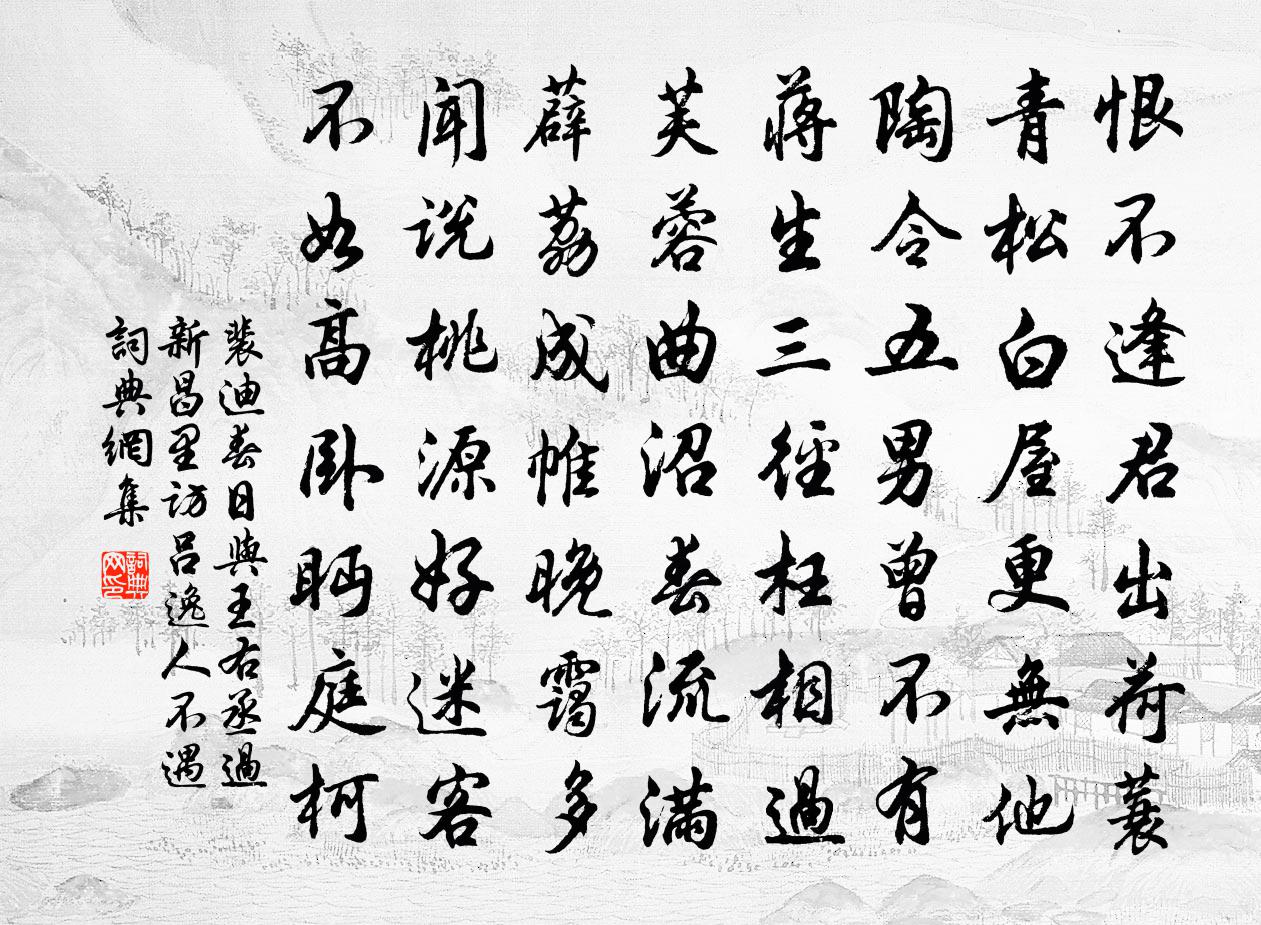 恨不逢君出荷蓑
青松白屋更無他
陶令五男曾不有
蔣生三徑枉相過
芙蓉曲沼春流滿
薜荔成帷晚靄多
聞説桃源好迷客
不如高卧眄庭柯
裴迪春日與王右丞過
新昌里訪呂逸人不遇
詞典網集
詞典網印